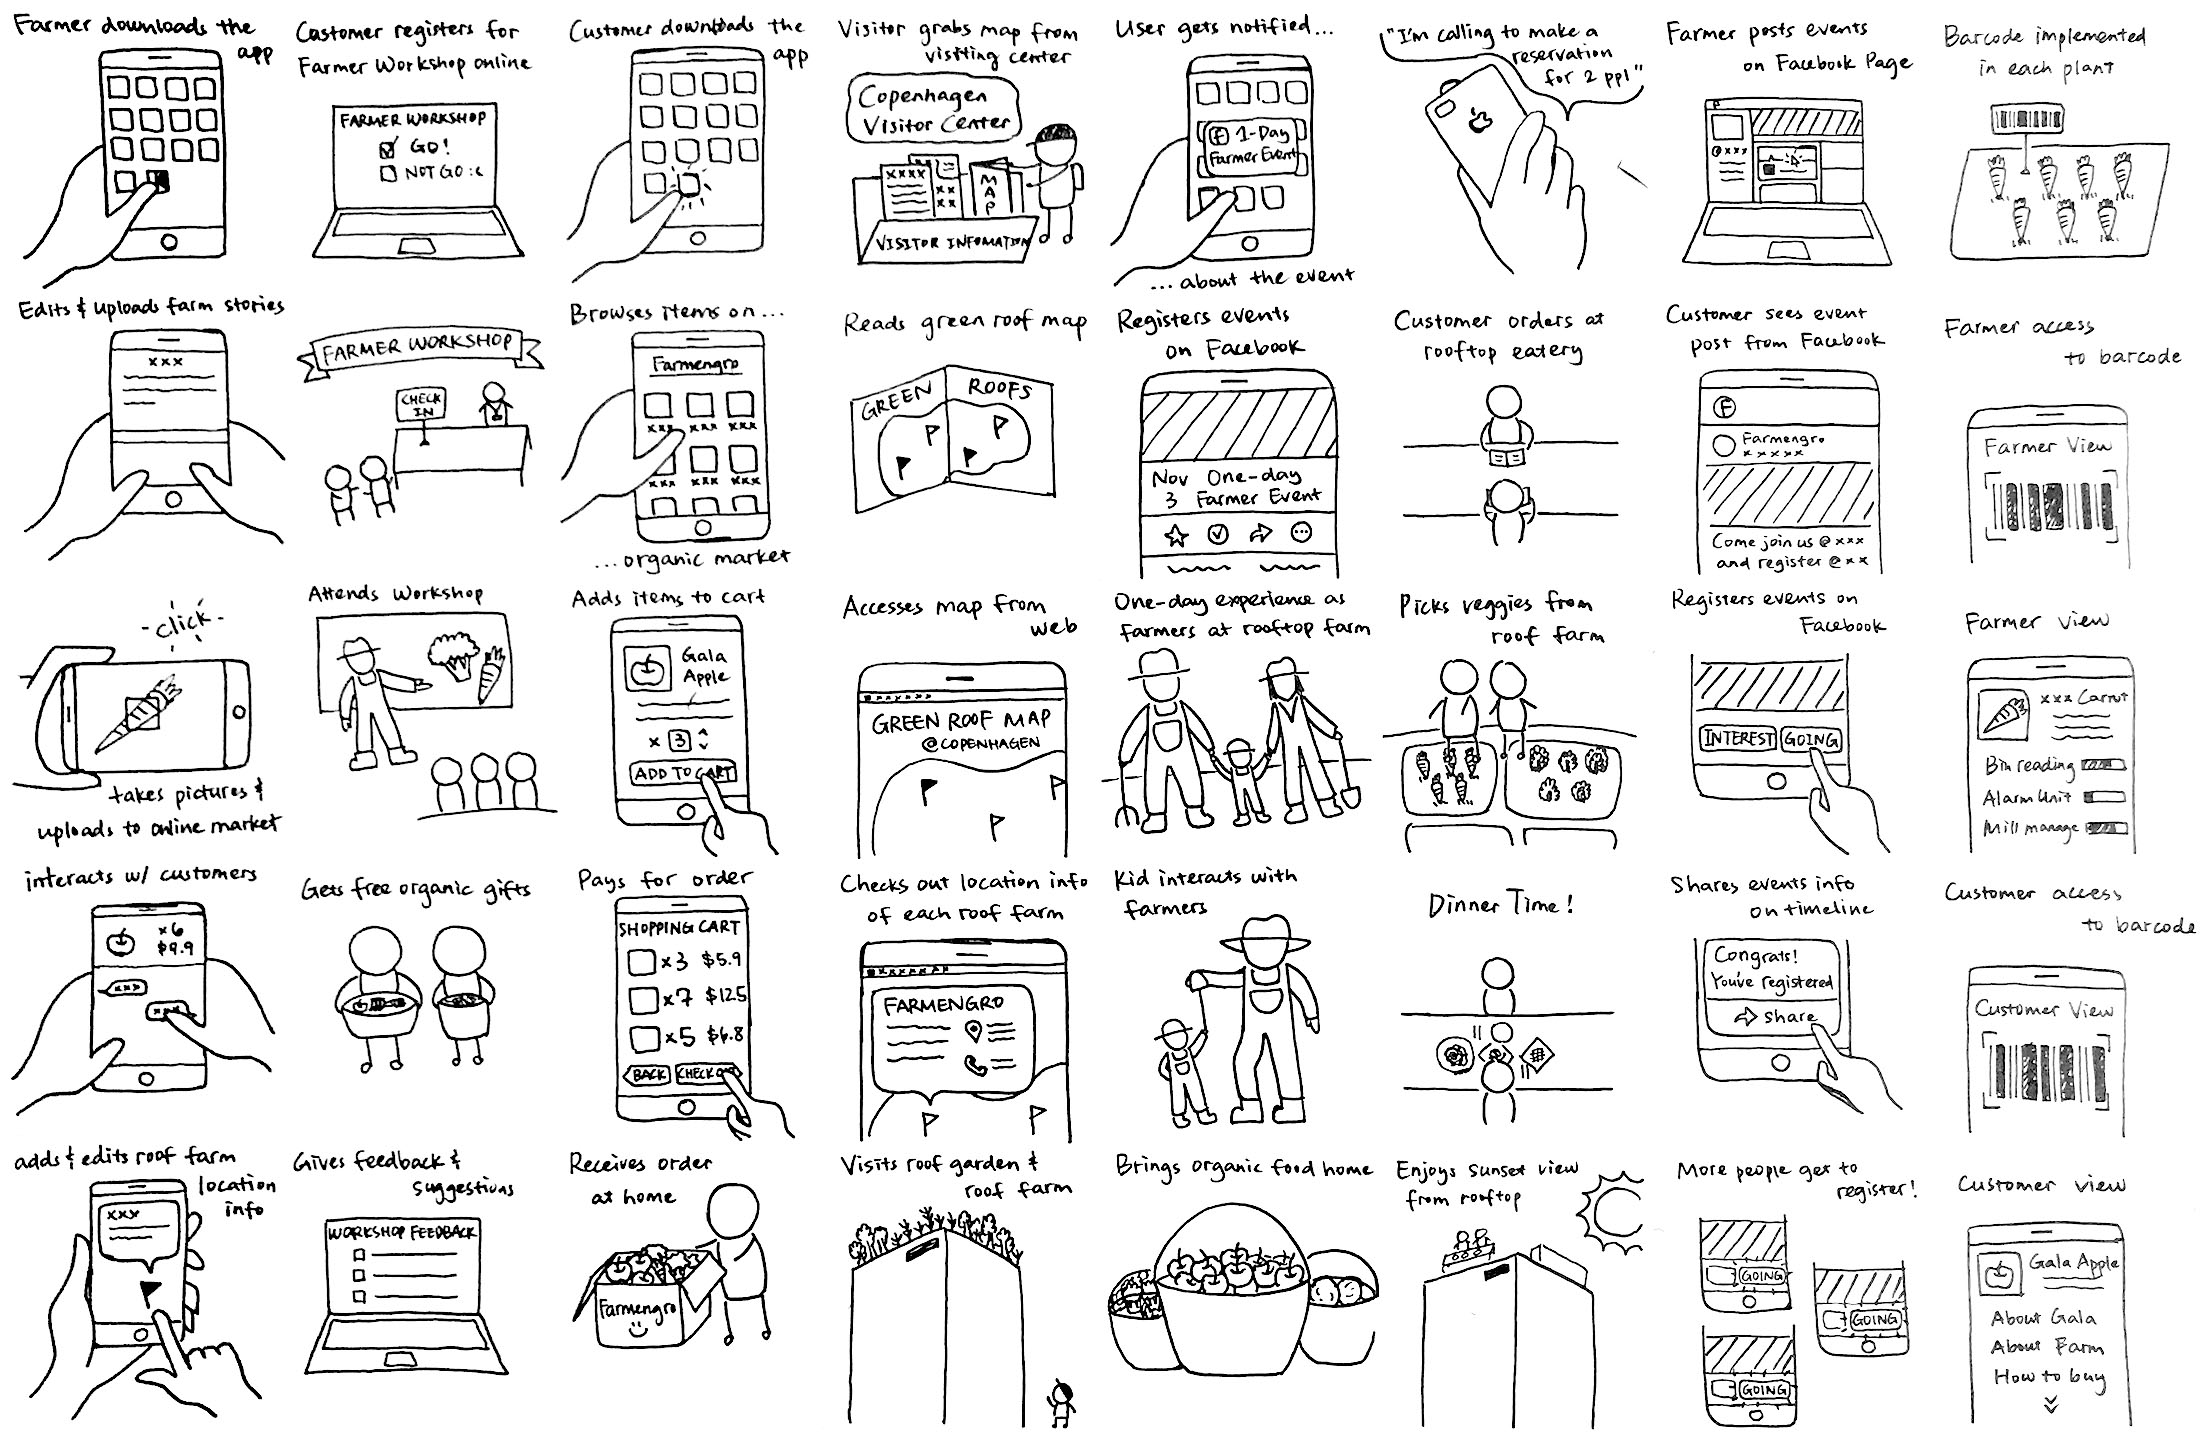 Farmer downloads the
app
Edits & uploads farm stories
xxx
-click-
takes pictures &
uploads to online market
interacts w/ customers
x6
$9.9
xxx
xxx
adds & edits roof farm
location
info
xxx
Customer registers for
Farmer Workshop online
FARMER WORKSHOP
GO!
NOT GO :(
FARMER WORKSHOP
CHECK
IN
Attends Workshop
Gets free organic gifts
Gives feedback &
suggestions
WORKSHOP FEEDBACK
Customer downloads the
app
Browses items on...
Farmengro
xxx xxx xxx
xxx xxx xxx
...organic market
Adds items to cart
Gala
Apple
x 3
ADD TO CART
Pays for order
SHOPPING CART
x3 $5.9
x7 $12.5
x5 $6.8
BACK CHECK OUT
Receives order
at home
Farmengro
Visitor grabs map from
visiting center
Copenhagen
Visitor Center
xxxx
xx
xx
MAP
VISITOR INFOMATION
Reads green roof map
GREEN ROOFS
Accesses map from
web
xxxxxxx
GREEN ROOF MAP
@COPENHAGEN
Checks out location info
of each roof farm
xxxxxxxx
FARMENGRO
Visits roof garden &
roof farm
User gets notified...
F 1-Day
Farmer Event
...about the event
Registers events
on Facebook
Nov One-day
3 Farmer Event
One-day experience as
farmers at rooftop farm
Kid interacts with
farmers
Brings organic food home
"I'm calling to make a
reservation
for 2 ppl"
Customer orders at
rooftop eatery
Picks veggies from
roof farm
Dinner Time!
Enjoys sunset view
from rooftop
Farmer posts events
on Facebook Page
xxx
Customer sees event
post from Facebook
F
Farmengro
xxxxx
Come join us @xxx
and register @xx
Registers events on
Facebook
INTEREST GOING
Shares events info
on timeline
Congrats!
You've registered
Share
More people get to
register!
GOING
GOING
GOING
Barcode implemented
in each plant
Farmer access
to barcode
Farmer View
Farmer view
xxx Carrot
Bin reading
Alarm Unit
Mill manage
Customer access
to barcode
Customer View
Customer view
Gala Apple
About Gala
About Farm
How to buy